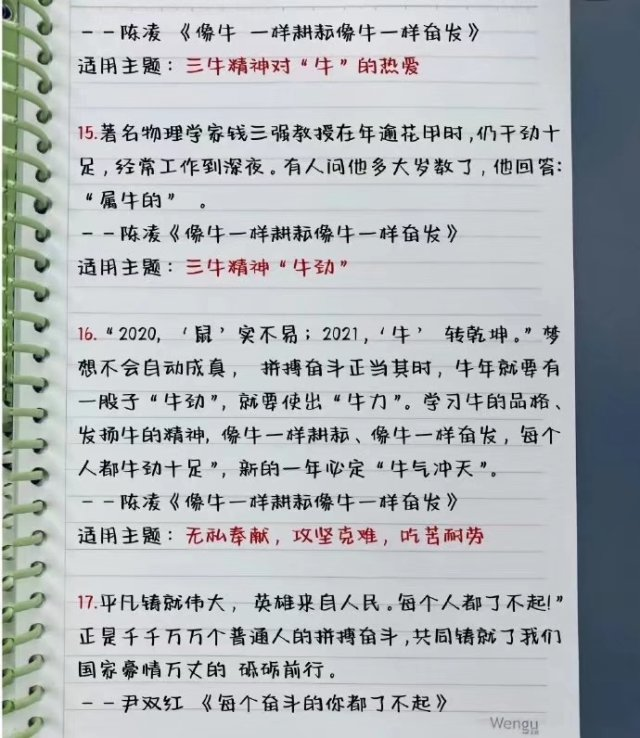 --陈凌《像牛 一样耕耘像牛一样奋发》
适用主题：三牛精神对“牛”的热爱
15.著名物理学家钱三强教授在年逾花甲时,仍干劲十
足,经常工作到深夜。有人问他多大岁数了,他回答:
“属牛的”。
--陈凌《像牛一样耕耘像牛一样奋发》
适用主题：三牛精神“牛劲”
16.“2020,‘鼠’实不易；2021,‘牛’ 转乾坤。”梦
想不会自动成真， 拼搏奋斗正当其时,牛年就要有
一股子“牛劲”,就要使出“牛力”。学习牛的品格、
发扬牛的精神,像牛一样耕耘、像牛一样奋发,每个
人都牛劲十足”,新的一年必定“牛气冲天”。
--陈凌《像牛一样耕耘像牛一样奋发》
适用主题：无私奉献，攻坚克难，吃苦耐劳
17.平凡铸就伟大，英雄来自人民。每个人都了不起!”
正是千千万万个普通人的拼搏奋斗,共同铸就了我们
国家豪情万丈的 砥砺前行。
--尹双红《每个奋斗的你都了不起》
Wengu